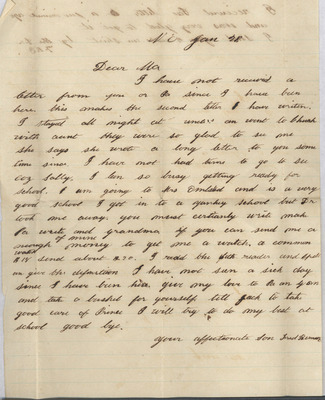 N.C. Jan 28
Dear Ma
I have not received a
letter from you or Pa since I have been
here. this makes the second letter I have writen.
I stayed all night at an went to Church
with aunt they were so glad to see me
she says she wrote a long letter to you some
time since I have not had time to go to see
coz Sally. I am so busy getting ready for
school. I am going to Mrs and is a very
good school I got in to a yankey school but
took me away. you must certianly write
Pa write and grandma if you can send me a
enough of mine money to get me a watch. a common
watch is send about I read the fith reader and spell
an give the defenition I have not sen a sick day
since I have bin here give my love to Pa an gran
and take a bushel for yourself. tell Jack to take
good care of Prince I will try to do my best at
school good bye.
your affectionate son Fred